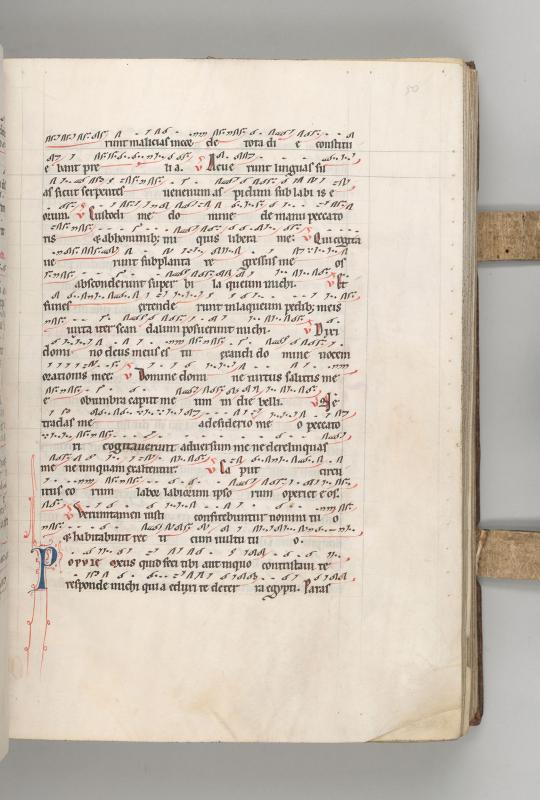 80
runt malicias in corde tota di e constitu
e bant pre li a. v Acue runt linguas su
as sicut serpentes venenum as pidum sub labi is e
orum. v Custodi me do mine de manu peccato
ris & ab hominib; ini quis libera me. v Qui cogita
ue runt subplanta re gressus me os
absconderunt super bi la queum michi. v Et
funes extende runt in laqueum pedib; meis
iuxta iter scan dalum posuerunt michi. v Dixi
domi no deus meus es tu exaudi do mine vocem
orationis mee. v Domine domi ne virtus salutis me
e obumbra caput me um in die belli. v Ne
tradas me a desiderio me o peccato
ri cogitauerunt aduersum me ne derelinquas
me ne umquam exaltentur. v Ca put circu
itus eo rum labor labiorum ipso rum operiet e os.
v Verumtamen iusti confitebuntur nomini tu o
& habitabunt rec ti cum uultu tu o.
Popule meus quid feci tibi aut in quo contristaui te
responde michi quia eduxi te de ter ra egypti. Paras